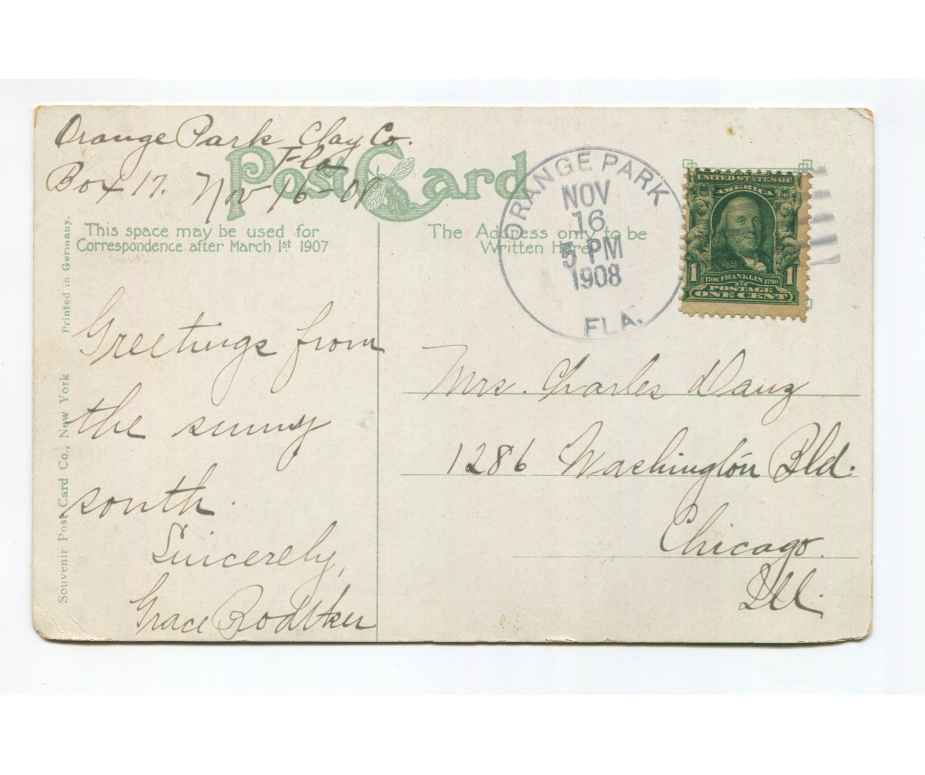 Orange Park Clay Co.
Fla
Box 17. Nov 16-09
Post Card
This space may be used for
Correspondence after March 1st 1907
The Address only to be
Written Here
ORANGE PARK
NOV
16
5 PM
1908
FLA.
UNITED STATES OF
AMERICA
1 FRANKLIN 1
POSTAGE
ONE CENT
Greetings from
the sunny
south.
Sincerely,
Grace
Mrs. Charles Danz
1286 Washington Bld.
Chicago.
Ill.
Souvenir Post Card Co., New York
Printed in Germany.